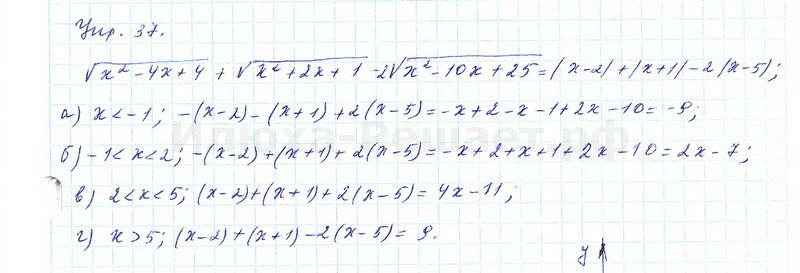 Упр. 37.
√x²-4x+4 + √x²+2x+1 -2√x²-10x+25 = |x-2|+|x+1|-2|x-5|;
а) x<-1; -(x-2)-(x+1)+2(x-5)=-x+2-x-1+2x-10=-9;
б) -1<x<2; -(x-2)+(x+1)+2(x-5)=-x+2+x+1+2x-10=2x-7;
в) 2<x<5; (x-2)+(x+1)+2(x-5)=4x-11;
г) x>5; (x-2)+(x+1)-2(x-5)=9.
y
Илюха-Решает.рф